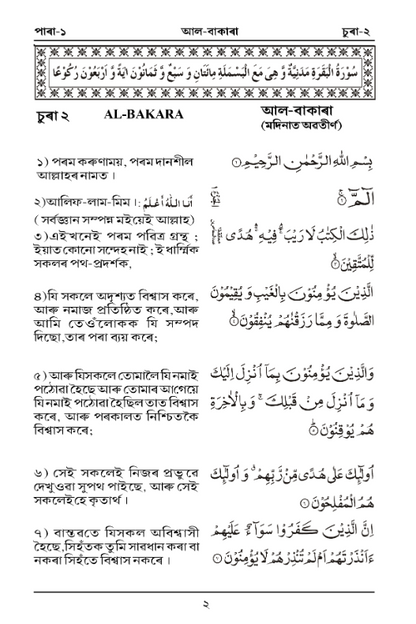 পাৰা-১ আল-বাকাৰা চুৰা-২
سُوْرَةُ الْبَقَرَةِ مَدَنِيَّةٌ وَّ هِىَ مَعَ الْبَسْمَلَةِ مِائَتَانِ وَ سَبْعٌ وَّ ثَمَانُوْنَ ايَةً وَّ اَرْبَعُوْنَ رُكُوْعًا
চুৰা ২ AL-BAKARA আল-বাকাৰা
(মদিনাত অৱতীৰ্ণ)
১) পৰম কৰুণাময়, পৰম দানশীল
আল্লাহৰ নামত ।
بِسْمِ اللهِ الرَّحْمٰنِ الرَّحِيْمِ ①
২)আলিফ-লাম-মিম ।: اَنَا اللهُ اَعْلَمُ
( সৰ্বজ্ঞান সম্পন্ন মইয়েই আল্লাহ)
الٓمّٓ ②
৩)এই খনেই পৰম পবিত্ৰ গ্ৰন্থ ;
ইয়াত কোনো সন্দেহ নাই ; ই ধাৰ্ম্মিক
সকলৰ পথ-প্ৰদৰ্শক,
ذٰلِكَ الْكِتٰبُ لَا رَيْبَ ۛ فِيْهِ ۛ هُدًى
لِّلْمُتَّقِيْنَ ③
৪)যি সকলে অদৃশ্যত বিশ্বাস কৰে,
আৰু নমাজ প্ৰতিষ্ঠিত কৰে,আৰু
আমি তেওঁলোকক যি সম্পদ
দিছো,তাৰ পৰা ব্যয় কৰে;
الَّذِيْنَ يُؤْمِنُوْنَ بِالْغَيْبِ وَ يُقِيْمُوْنَ
الصَّلٰوةَ وَ مِمَّا رَزَقْنٰهُمْ يُنْفِقُوْنَ ④
৫) আৰু যিসকলে তোমালৈ যি নমাই
পঠোৱা হৈছে আৰু তোমাৰ আগেয়ে
যি নমাই পঠোৱা হৈছিল তাত বিশ্বাস
কৰে, আৰু পৰকালত নিশ্চিতকৈ
বিশ্বাস কৰে;
وَالَّذِيْنَ يُؤْمِنُوْنَ بِمَآ اُنْزِلَ اِلَيْكَ
وَ مَآ اُنْزِلَ مِنْ قَبْلِكَ ۚ وَ بِالْاٰخِرَةِ
هُمْ يُوْقِنُوْنَ ⑤
৬) সেই সকলেই নিজৰ প্ৰভুৱে
দেখুওৱা সুপথ পাইছে, আৰু সেই
সকলেই হে কৃতাৰ্থ ।
اُولٰٓئِكَ عَلٰى هُدًى مِّنْ رَّبِّهِمْ ۙ وَ اُولٰٓئِكَ
هُمُ الْمُفْلِحُوْنَ ⑥
৭) বাস্তৱতে যিসকল অবিশ্বাসী
হৈছে,সিহঁতক তুমি সাৱধান কৰা বা
নকৰা সিহঁতে বিশ্বাস নকৰে ।
اِنَّ الَّذِيْنَ كَفَرُوْا سَوَآءٌ عَلَيْهِمْ
ءَاَنْذَرْتَهُمْ اَمْ لَمْ تُنْذِرْهُمْ لَا يُؤْمِنُوْنَ ⑦
২